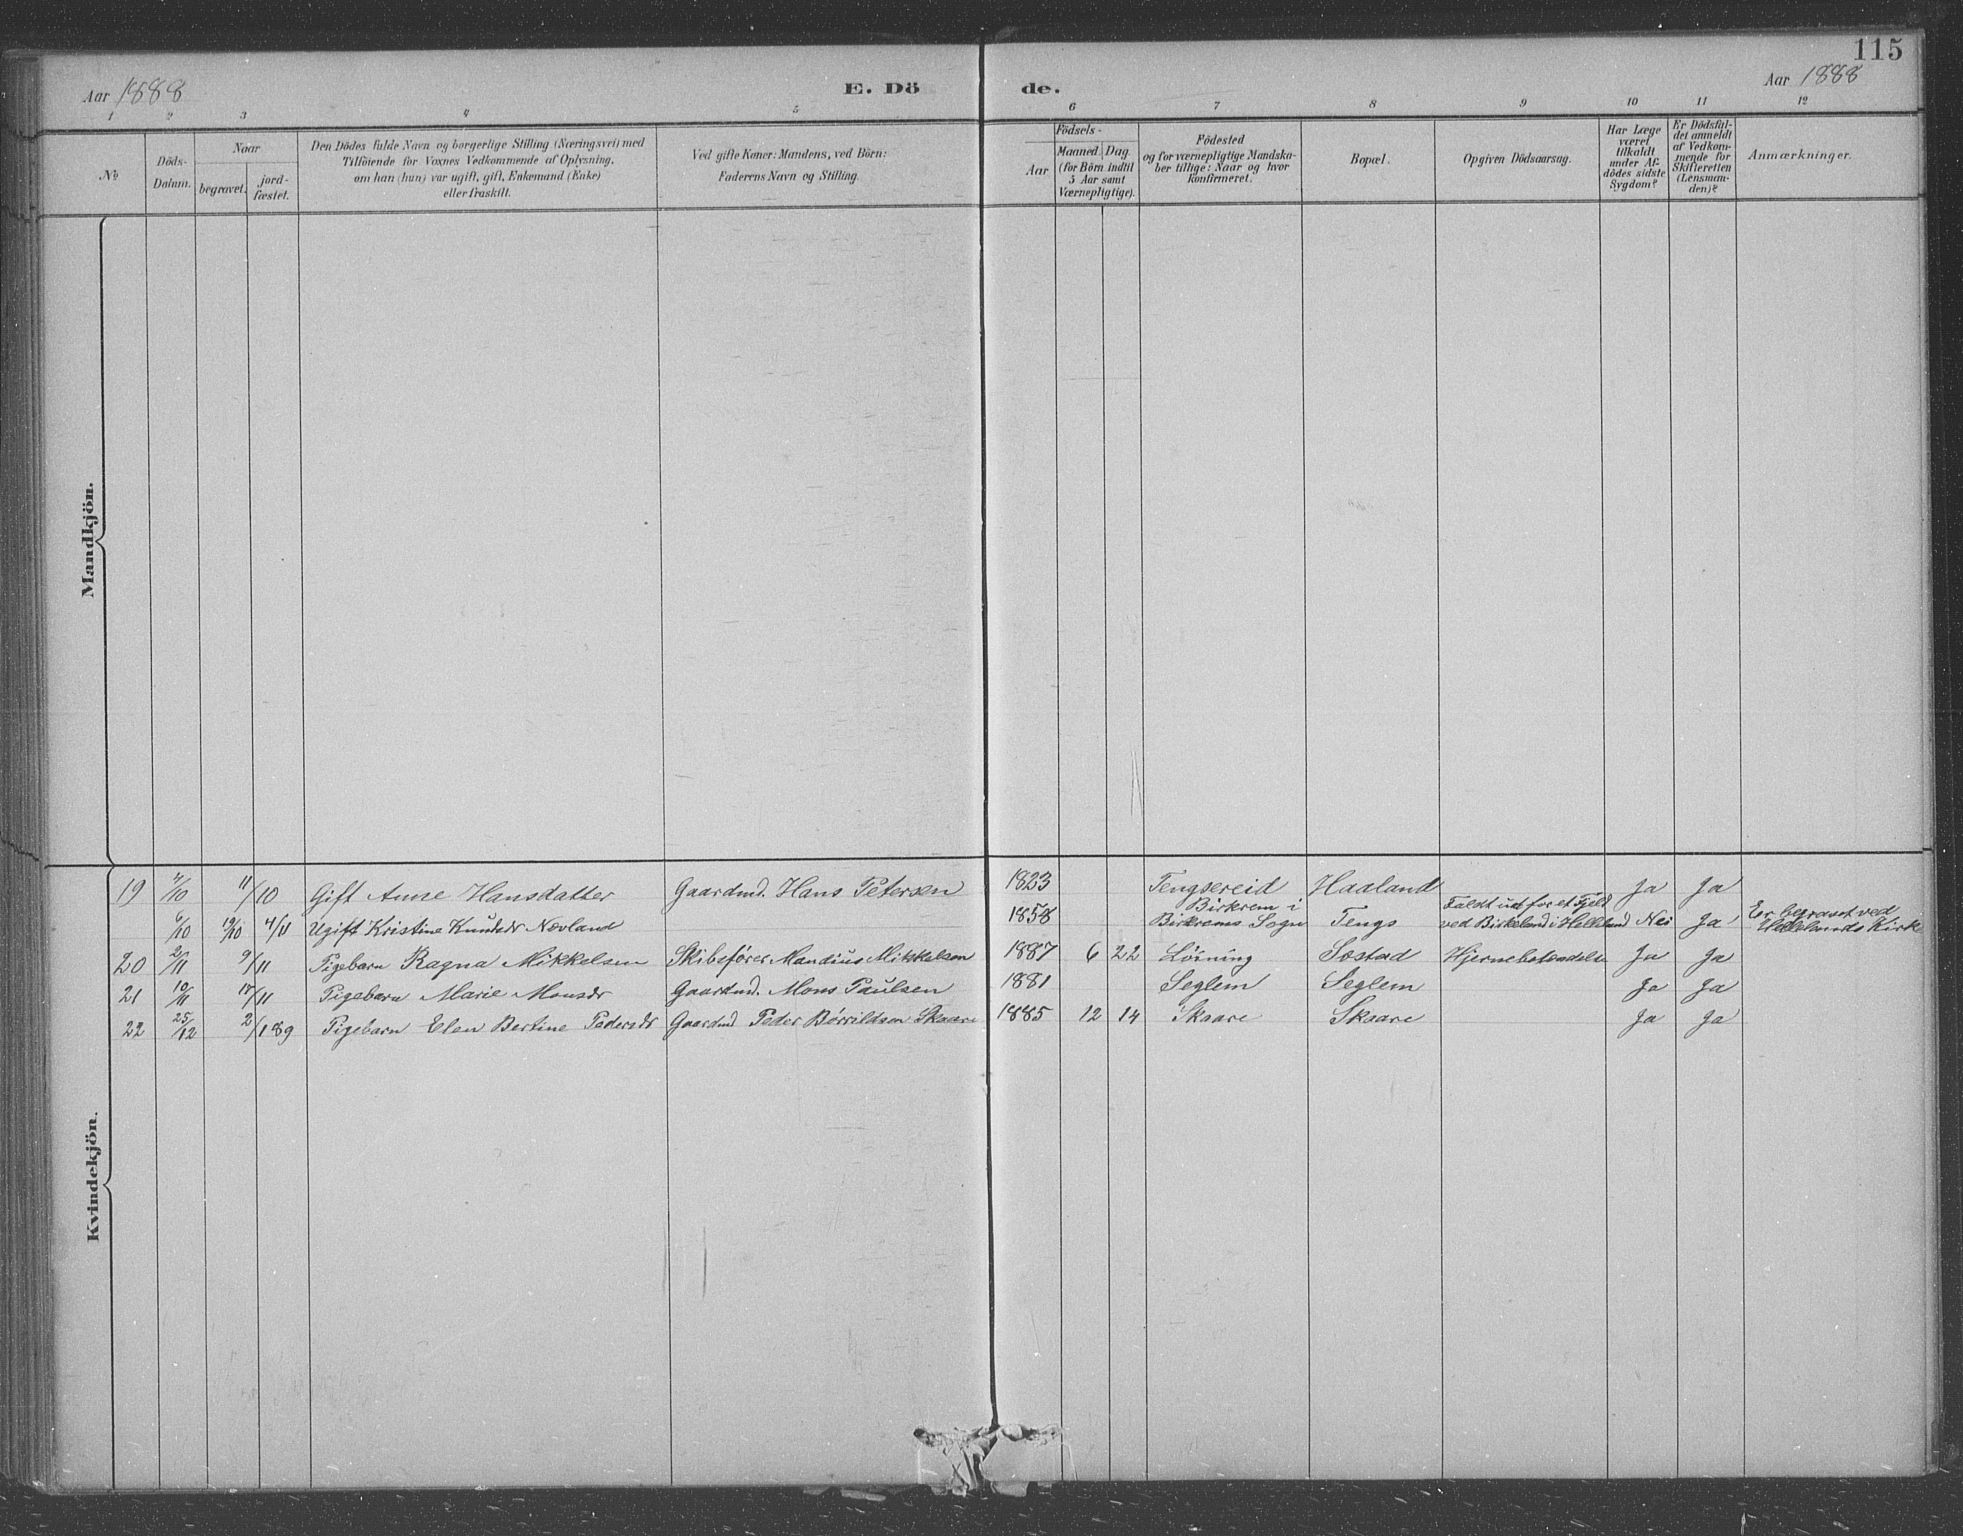 115
Aar 1888 E. Dö de. Aar 1888
1 2 3 4 5 6 7 8 9 10 11 12
№
Döds-
Datum.
Naar
begravet.
jord-
fæstet.
Den Dödes fulde Navn og borgerlige Stilling (Næringsvei) med
Tilföiende for Voxnes Vedkommende af Oplysning,
om han (hun) var ugift, gift, Enkemand (Enke)
eller fraskilt.
Ved gifte Koner: Mandens, ved Börn:
Faderens Navn og Stilling.
Födsels-
Aar
Maaned. Dag
(for Börn indtil
5 Aar samt
Værnepligtige).
Födested
og for værnepligtige Mandska-
ber tillige: Naar og hvor
konfirmeret.
Bopæl.
Opgiven Dödsaarsag.
Har Læge
været
tilkaldt
under Af-
dödes sidste
Sygdom?
Er Dödsfal-
det anmeldt
af Vedkom-
mende for
Skifteretten
(Lensman-
den)?
Anmærkninger.
Mandkjön.
Kvindekjön.
19 4/10 11/10 Gift Anne Hansdatter Gaardmd. Hans Petersen 1823 Tengsereid Haaland Ja Ja
6/10 10/10 4/11 Ugift Kristine Knudsdr Nævland 1858 Birkrem i Birkrems Sogn Tengs Faldt ud for et Fjeld ved Birkeland i Helleland Nei Ja Er begravet ved Hellelands Kirke
20 2/11 9/11 Pigebarn Ragna Mikkelsen Skibsfører Mandius Mikkelsen 1887 6 22 Løvning Sostad Hjernebetændelse Ja Ja
21 10/11 17/11 Pigebarn Marie Monsdr Gaardmd. Mons Paulsen 1881 Seglem Seglem Ja Ja
22 25/12 2/1 89 Pigebarn Elen Bertine Pedersdr Gaardmd Peder Børrildsen Skaare 1885 12 14 Skaare Skaare Ja Ja